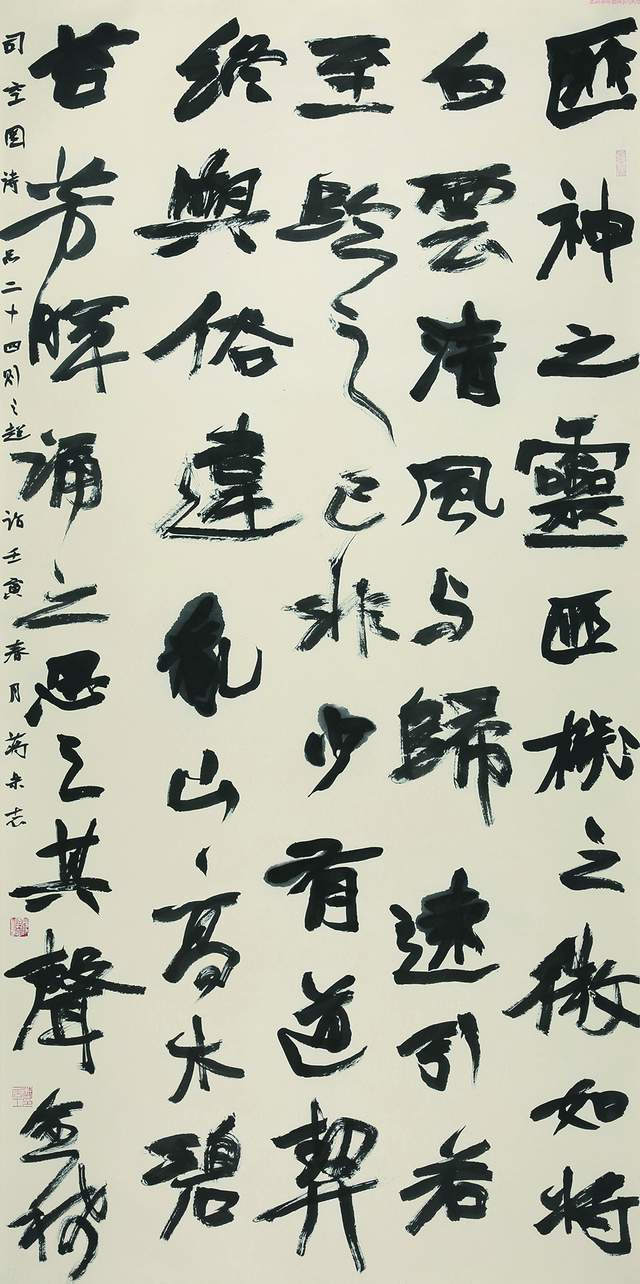 匪神之靈匪機之微如將
白雲清風与歸遠引若
至臨之已非少有道契
終與俗違亂山高木碧
苔芳暉誦之思之其聲愈稀
司空图诗品二十四则之超诣壬寅春月蒋志